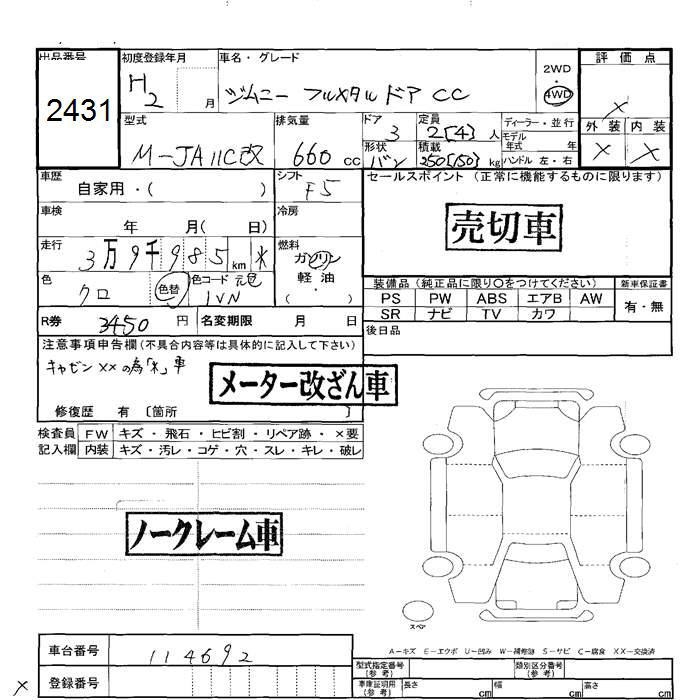 出品番号 初度登録年月 車名・グレード 2WD 評価点
2431 H2 月 ジムニー フルメタルドア CC ・4WD ×
型式 排気量 ドア 定員 ディーラー・並行 外装 内装
M-JA11C改 660 cc 3 2[4] 人 モデル年式 年 × ×
形状 積載
バン 250[150] kg ハンドル 左・右
車歴 シフト セールスポイント (正常に機能するものに限ります)
自家用・( ) F5
車検 冷房
年 月( 日) 売切車
走行 燃料
3万9千985km * ガソリン
色 色替 色コード 元色 軽油 装備品 (純正品に限り○をつけてください) 新車保証書
クロ 1VN ・( ) PS PW ABS エアB AW 有・無
R券 3450円 名変期限 月 日 SR ナビ TV カワ
注意事項申告欄(不具合内容等は具体的に記入して下さい) 後日品
キャビン××の為「*」車
メーター改ざん車
修復歴 有 〔箇所 〕
検査員 FW キズ・飛石・ヒビ割・リペア跡・×要
記入欄 内装 キズ・汚レ・コゲ・穴・スレ・キレ・破レ
ノークレーム車
スペア
A-キズ E-エクボ U-凹み W-補修跡 S-サビ C-腐食 XX-交換済
車台番号 114692 型式指定番号(参考) 類別区分番号(参考)
× 登録番号 車庫証明用(参考) 長さ cm 幅 cm 高さ cm